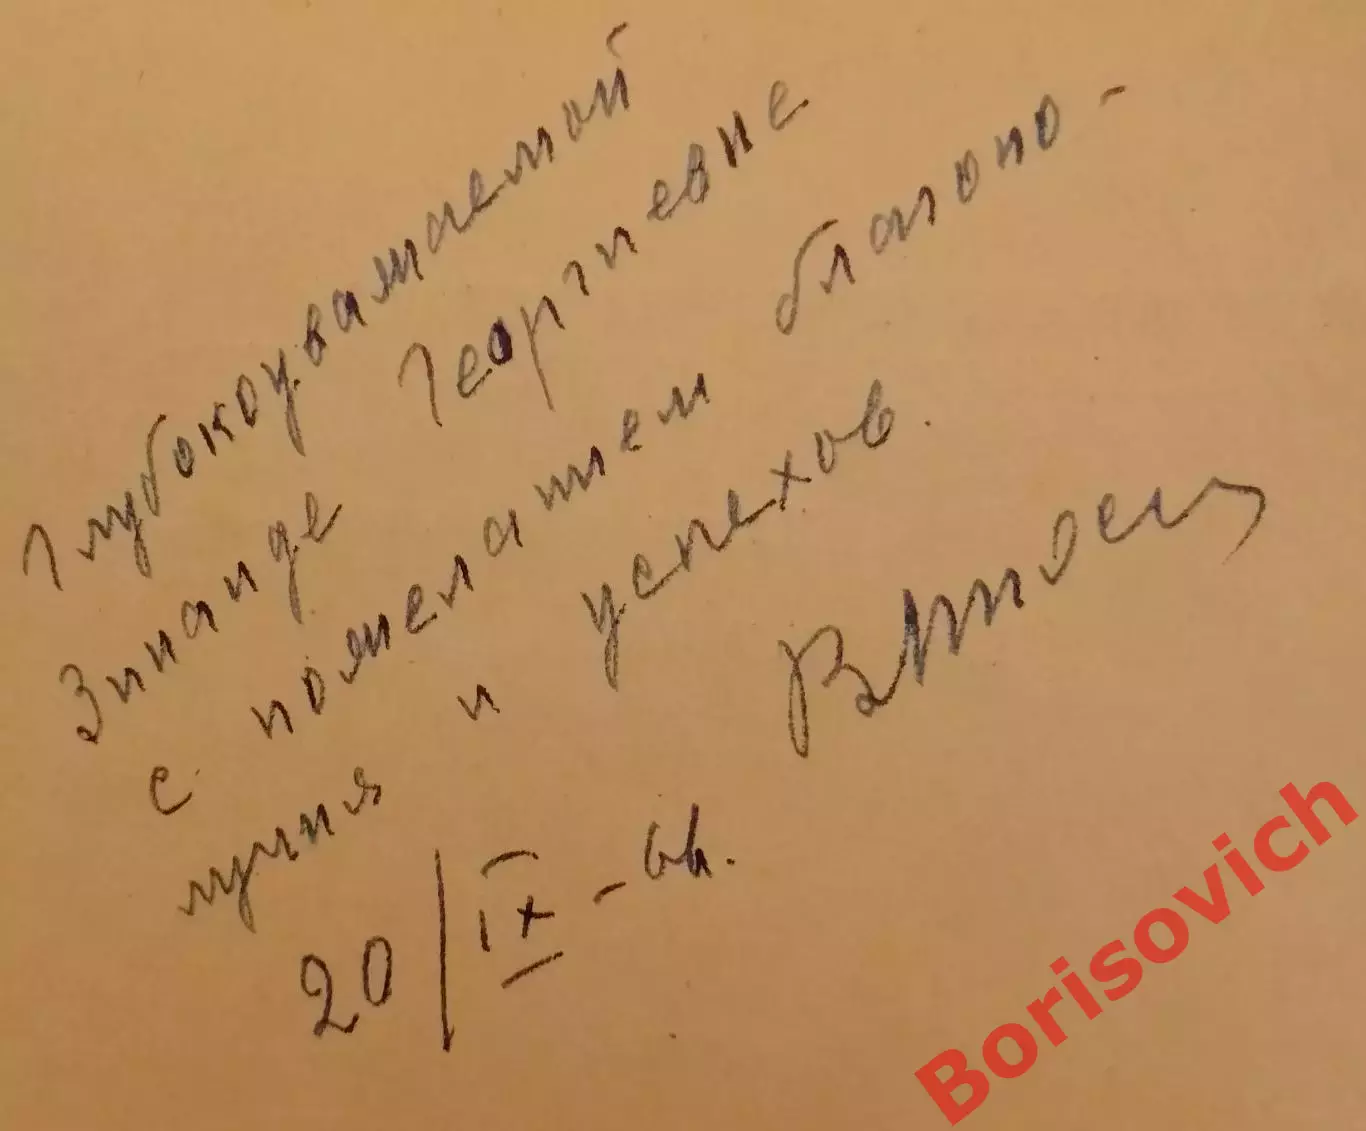 Глубокоуважаемой
Зинаиде Георгиевне
с пожеланием благопо-
лучия и успехов.
20/IX-66.
Borisovich